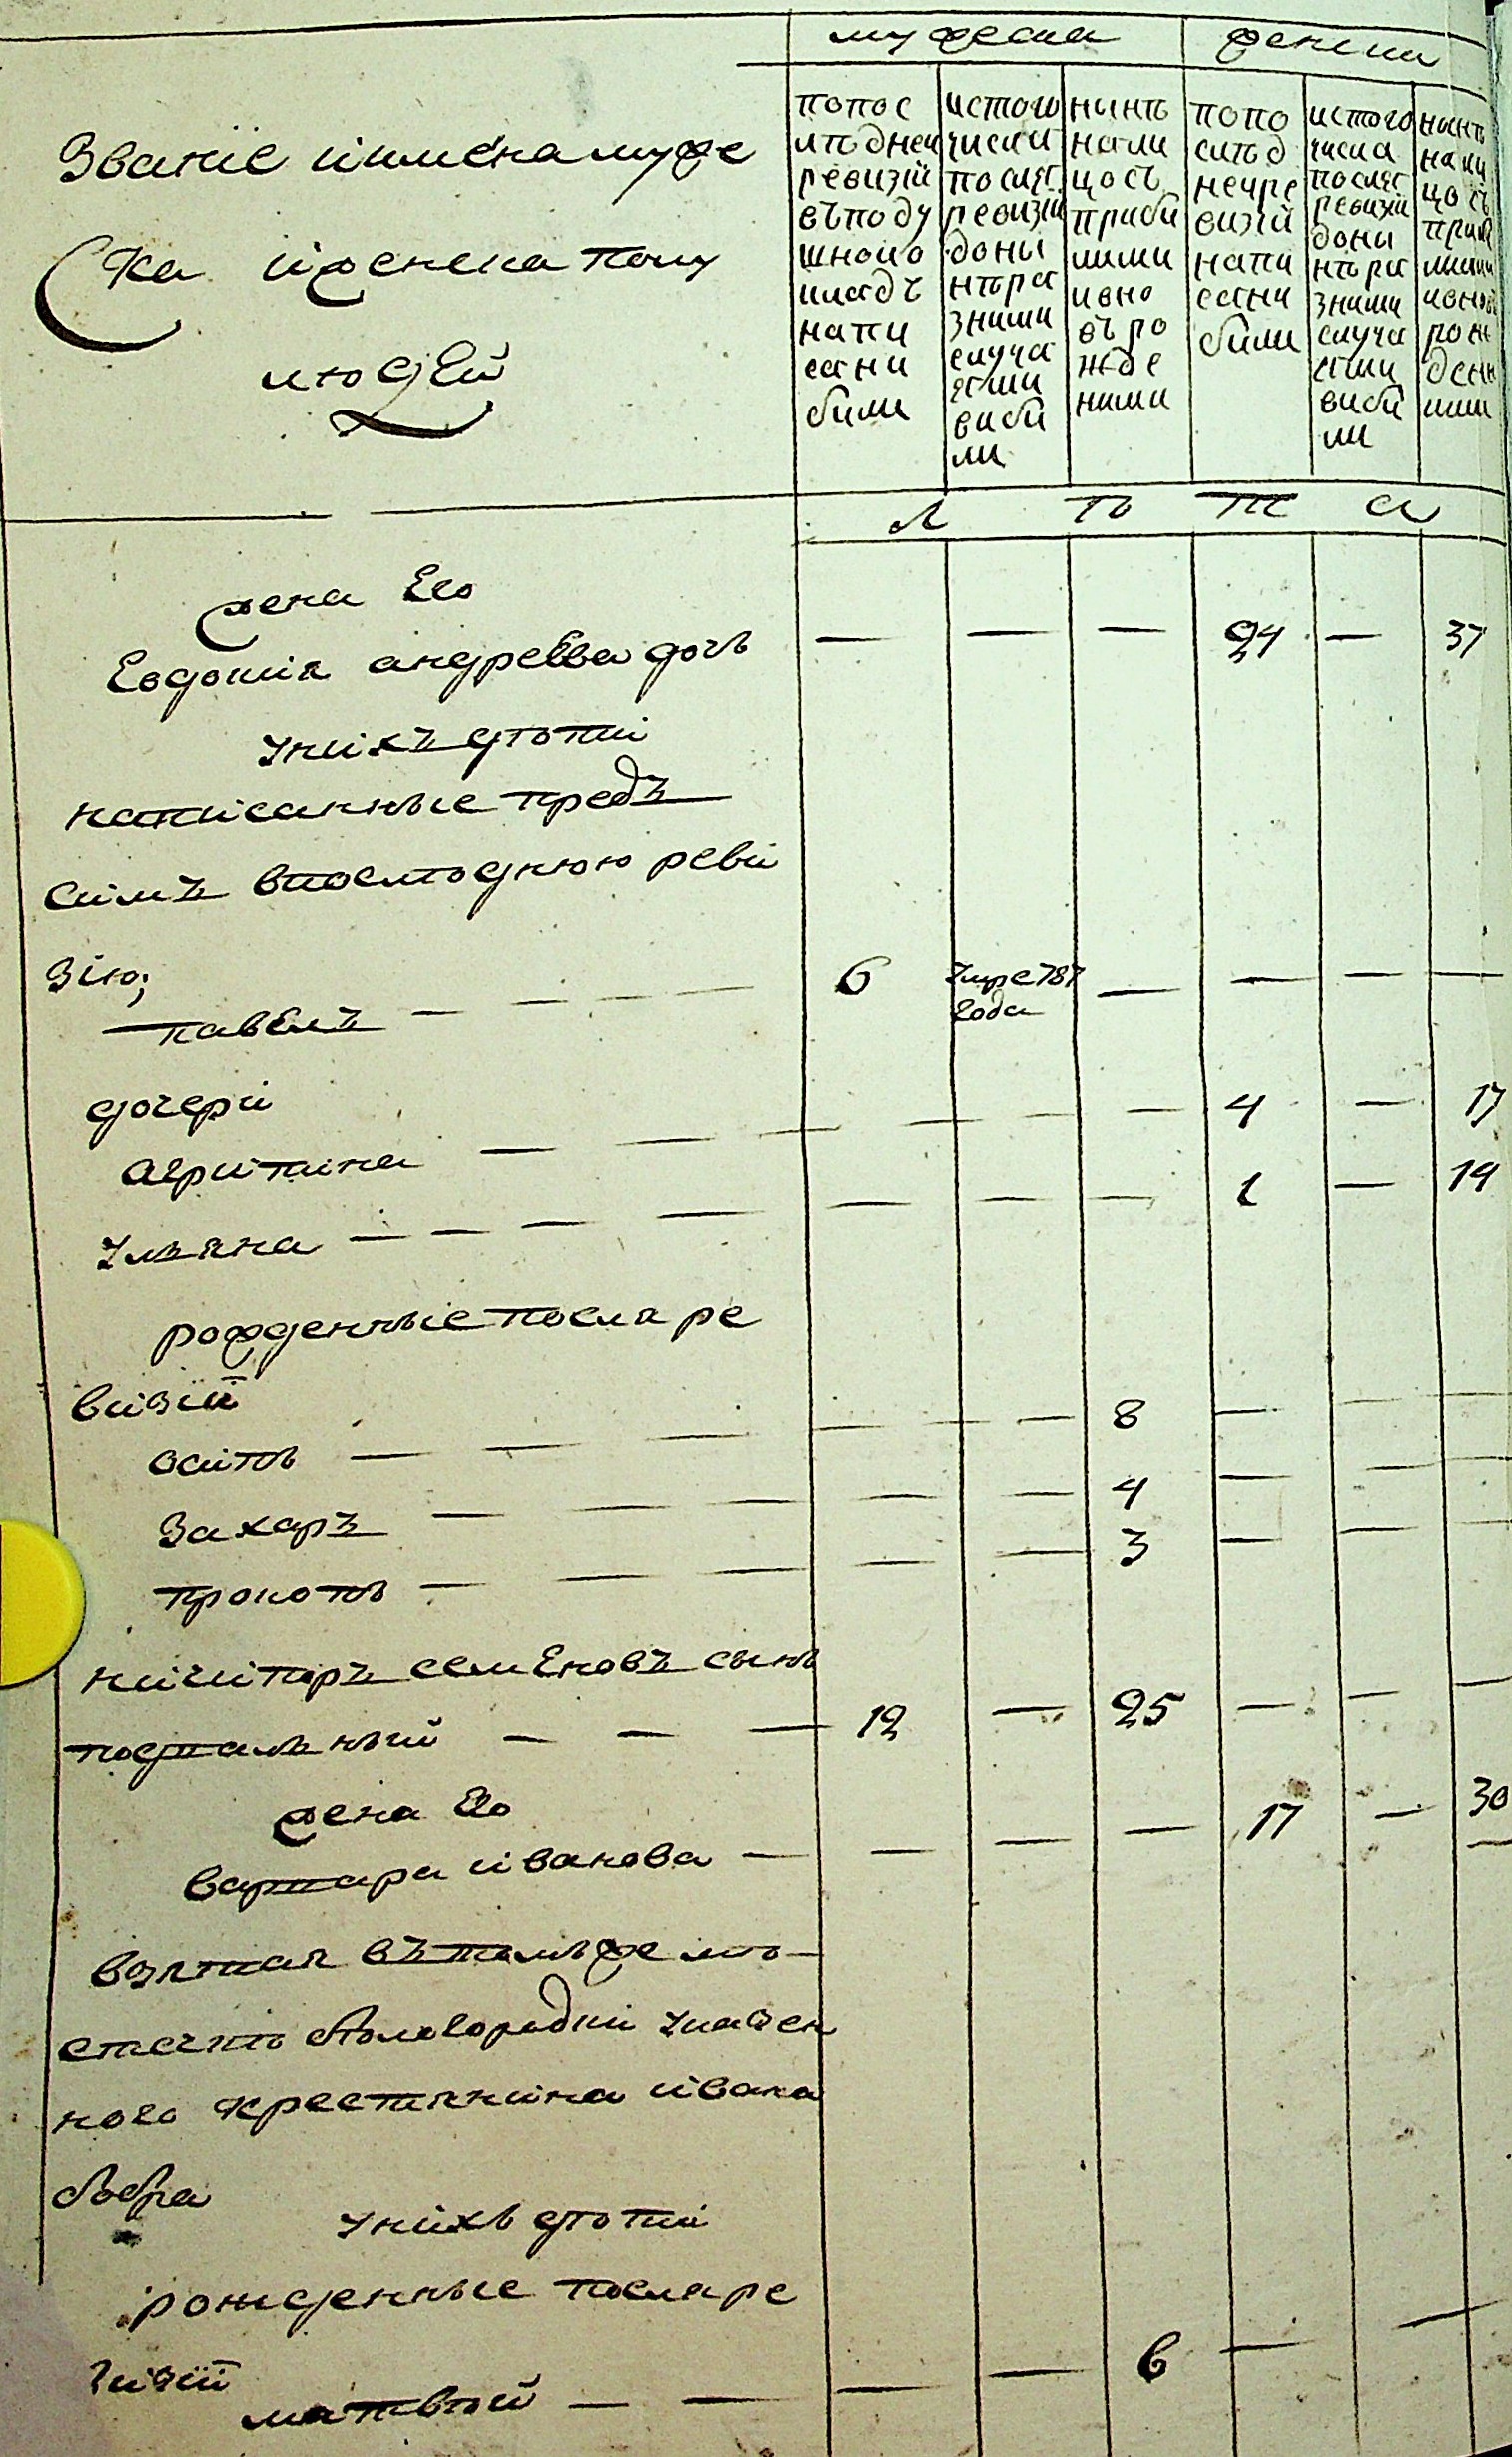 мужеска
женски
Званіе иимена муже
ска иженска полу
людей
попос
лѣдней
ревизій
въподу
шной о
кладъ
напи
сани
били
истого
числа
послѣ
ревизіи
доны
нѣра
зними
случа
ями
виби
ли
нынѣ
нали
цосъ
приби
лими
ивно
въ ро
жде
ними
попо
слѣд
нейре
визій
напи
сани
били
истого
числа
послѣ
ревизіи
доны
нѣра
зними
случа
ями
виби
ли
нынѣ
нали
цосъ
приб
лими
ивно
рож
денн
ими
л ѣ т а
жена Его
Евдокия андреева дочь — — — 24 — 37
унихъ дѣти
написанные предъ
симъ впослѣднюю реви
зію;
павелъ — — — 6 умре 787 года — — — —
дочери
агрипина — — — — — — 4 — 17
уляна — — — — — — — 1 — 14
рожденные после ре
визіи
осипъ — — — — — — 8 — — —
Захаръ — — — — — — 4 — — —
прокопъ — — — — — 3 — — —
никипоръ семеновъ сынъ
подпальный — — — 12 — 25 — — —
жена Его
варвара иванова — — — — 17 — 30
взятая въ томъ же мѣ
стечкѣ белогородки казен
ного крестянина ивана
бобра
унихъ дѣти
рожденные после ре
визіи
матвѣй — — — — 6 — —